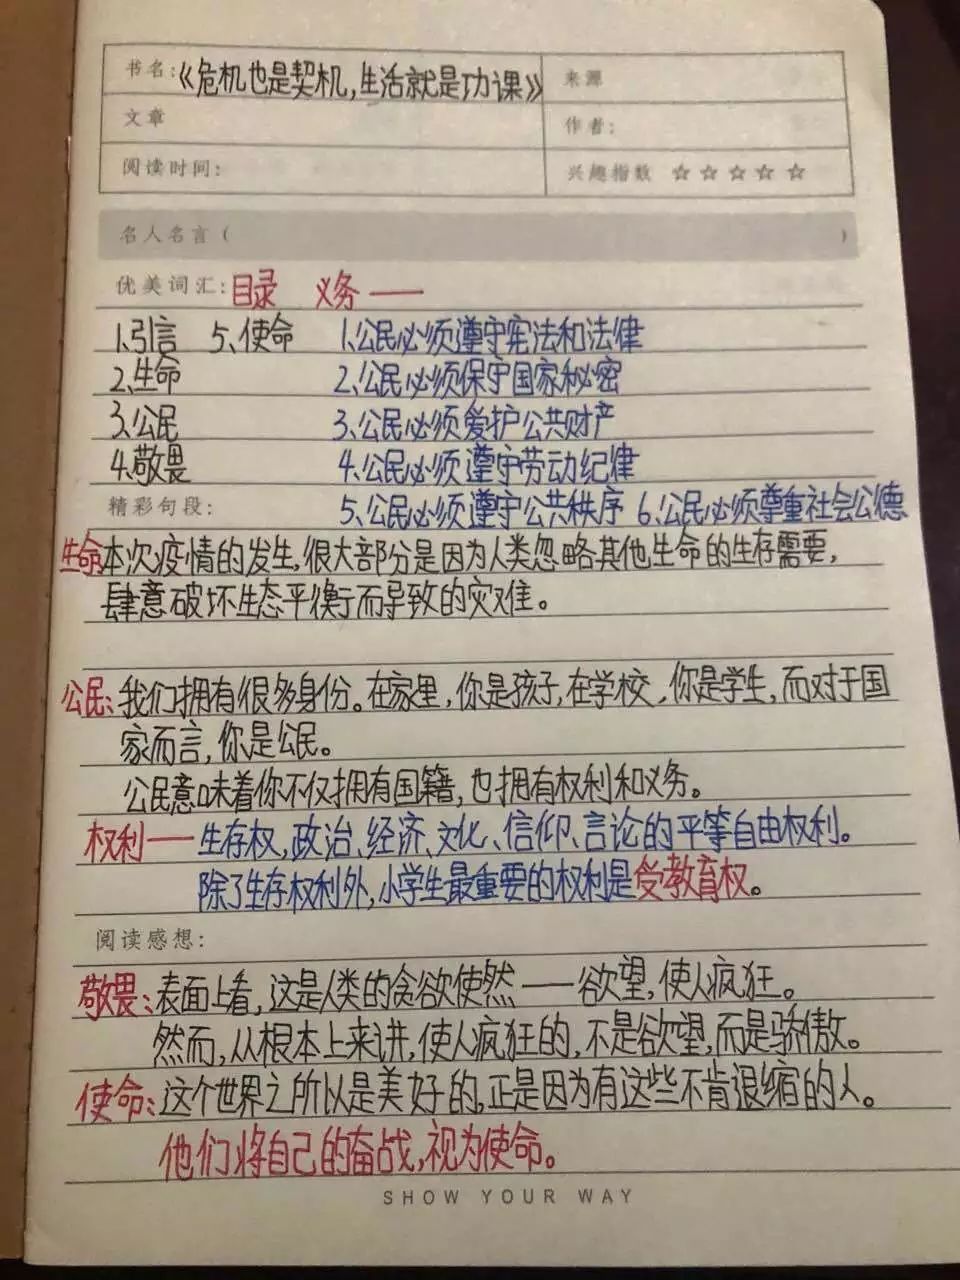 书名:《危机也是契机,生活就是功课》 来源
文章 作者:
阅读时间: 兴趣指数 ☆☆☆☆☆
名人名言( )
优美词汇: 目录 义务——
1.引言 5、使命 1、公民必须遵守宪法和法律
2、生命 2、公民必须保守国家秘密
3、公民 3、公民必须爱护公共财产
4、敬畏 4、公民必须遵守劳动纪律
精彩句段: 5、公民必须遵守公共秩序 6、公民必须尊重社会公德
生命:本次疫情的发生,很大部分是因为人类忽略其他生命的生存需要,
肆意破坏生态平衡而导致的灾难。
公民:我们拥有很多身份。在家里,你是孩子,在学校,你是学生,而对于国
家而言,你是公民。
公民意味着你不仅拥有国籍,也拥有权利和义务。
权利——生存权、政治、经济、文化、信仰、言论的平等自由权利。
除了生存权利外,小学生最重要的权利是受教育权。
阅读感想:
敬畏:表面上看,这是人类的贪欲使然——欲望,使人疯狂。
然而,从根本上来讲,使人疯狂的,不是欲望,而是骄傲。
使命:这个世界之所以是美好的,正是因为有这些不肯退缩的人。
他们将自己的奋战,视为使命。
SHOW YOUR WAY